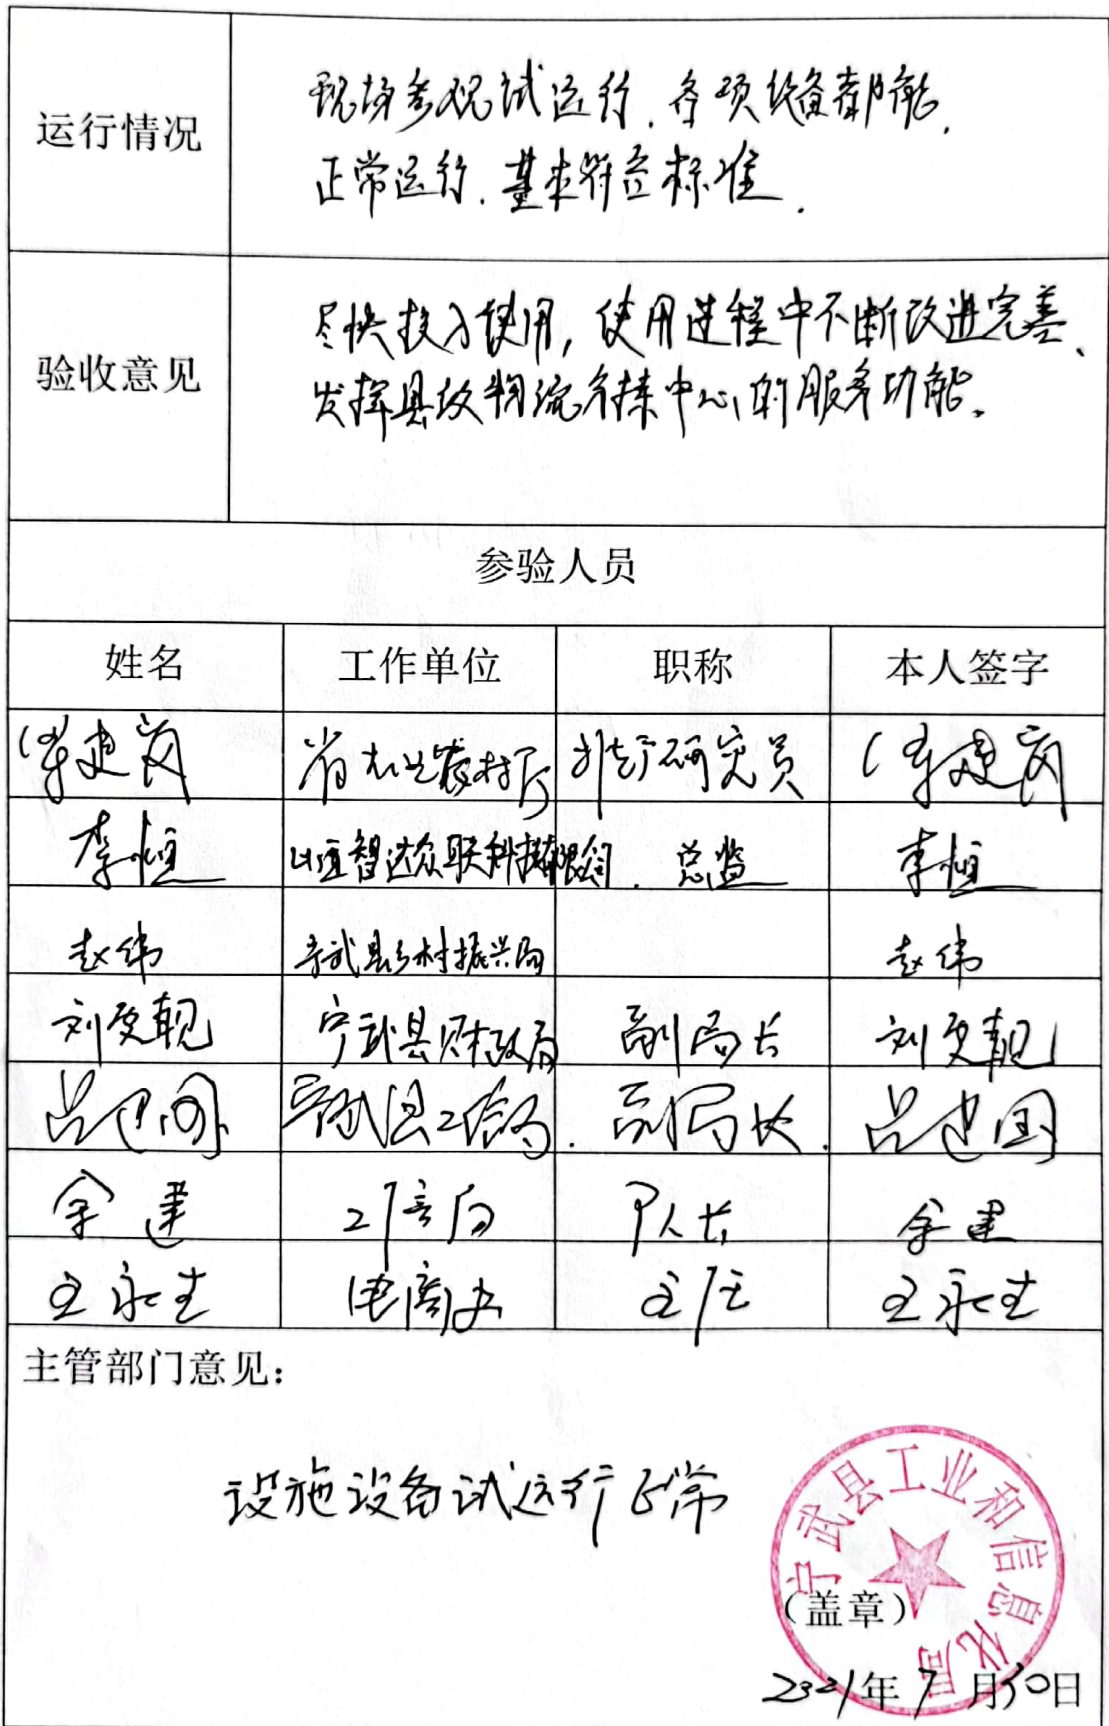 运行情况
现场参观试运行.各项设备都能.
正常运行.基本符合标准.
验收意见
尽快投入使用,使用过程中不断改进完善、
发挥县级物流分拣中心的服务功能。
参验人员
姓名 工作单位 职称 本人签字
建岗 省农业农村厅 推广研究员 建岗
李恒 山西智达众联科技有限公司. 总监 李恒
赵伟 宁武县乡村振兴局 赵伟
刘变靓 宁武县财政局 副局长 刘变靓
吕建国 宁武县工信局. 副局长. 吕建国
余建 工信局 余建
王永生 电商办 主任 王永生
主管部门意见:
设施设备试运行正常
宁武县工业和信息化局
(盖章)
2021年7月30日